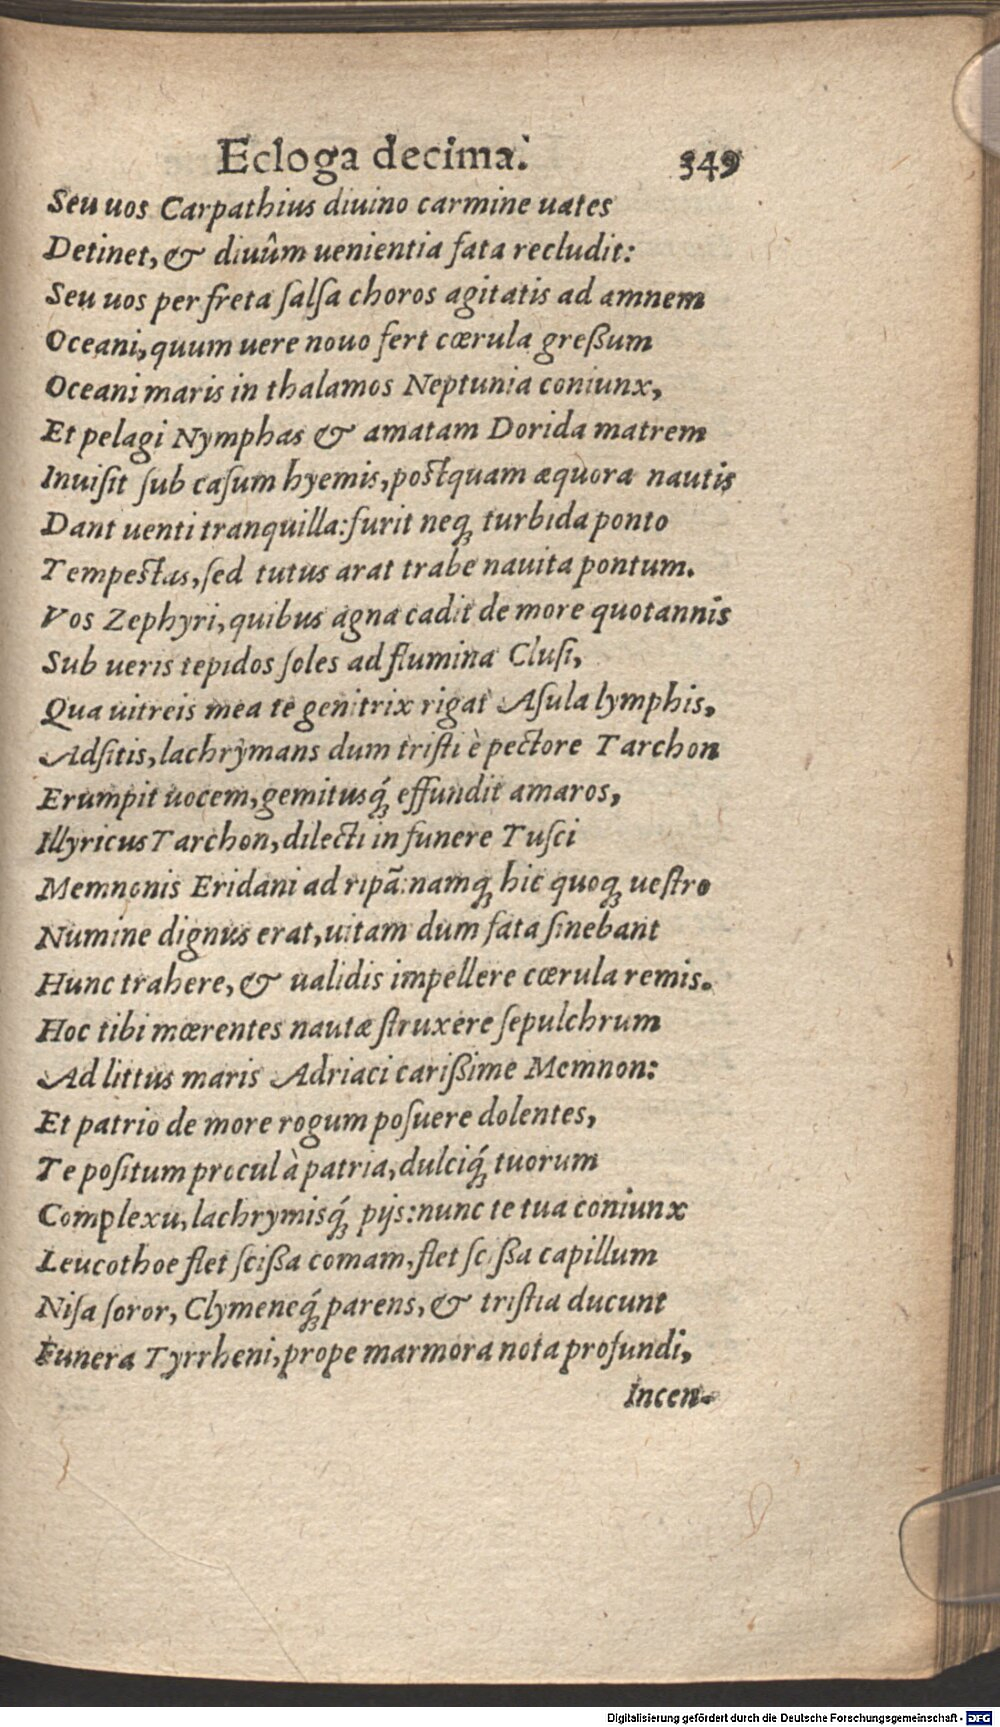 Ecloga decima. 349
Seu uos Carpathius diuino carmine uates
Detinet, & diuûm uenientia fata recludit:
Seu uos per freta ſalſa choros agitatis ad amnem
Oceani, quum uere nouo fert cœrula greßum
Oceani maris in thalamos Neptunia coniunx,
Et pelagi Nymphas & amatam Dorida matrem
Inuiſit ſub caſum hyemis, poſtquam æquora nautis
Dant uenti tranquilla: furit neq; turbida ponto
Tempeſtas, ſed tutus arat trabe nauita pontum.
Vos Zephyri, quibus agna cadit de more quotannis
Sub ueris tepidos ſoles ad flumina Cluſi,
Qua uitreis mea te genitrix rigat Aſula lymphis,
Adſitis, lachrymans dum triſti è pectore Tarchon
Erumpit uocem, gemitusq́; effundit amaros,
Illyricus Tarchon, dilecti in funere Tuſci
Memnonis Eridani ad ripã: namq; hic quoq; ueſtro
Numine dignus erat, uitam dum fata ſinebant
Hunc trahere, & ualidis impellere cœrula remis.
Hoc tibi mœrentes nautæ ſtruxere ſepulchrum
Ad littus maris Adriaci carißime Memnon:
Et patrio de more rogum poſuere dolentes,
Te poſitum procul à patria, dulciq́; tuorum
Complexu, lachrymisq́; pijs: nunc te tua coniunx
Leucothoe flet ſcißa comam, flet ſcißa capillum
Niſa ſoror, Clymeneq́; parens, & triſtia ducunt
Funera Tyrrheni, prope marmora nota profundi,
Incen-
Digitalisierung gefördert durch die Deutsche Forschungsgemeinschaft - DFG